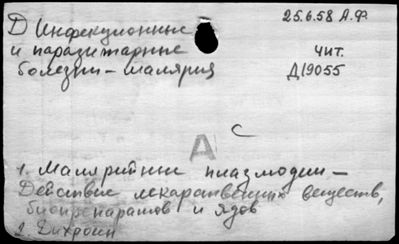 25.6.58 А.Ф.
Д Инфекционные
и паразитарные
болезни – малярия
Чит.
Д19055
С
А
1. Малярийные плазмодии –
Действие лекарственных веществ,
биопрепаратов и ядов
2. Дихроин